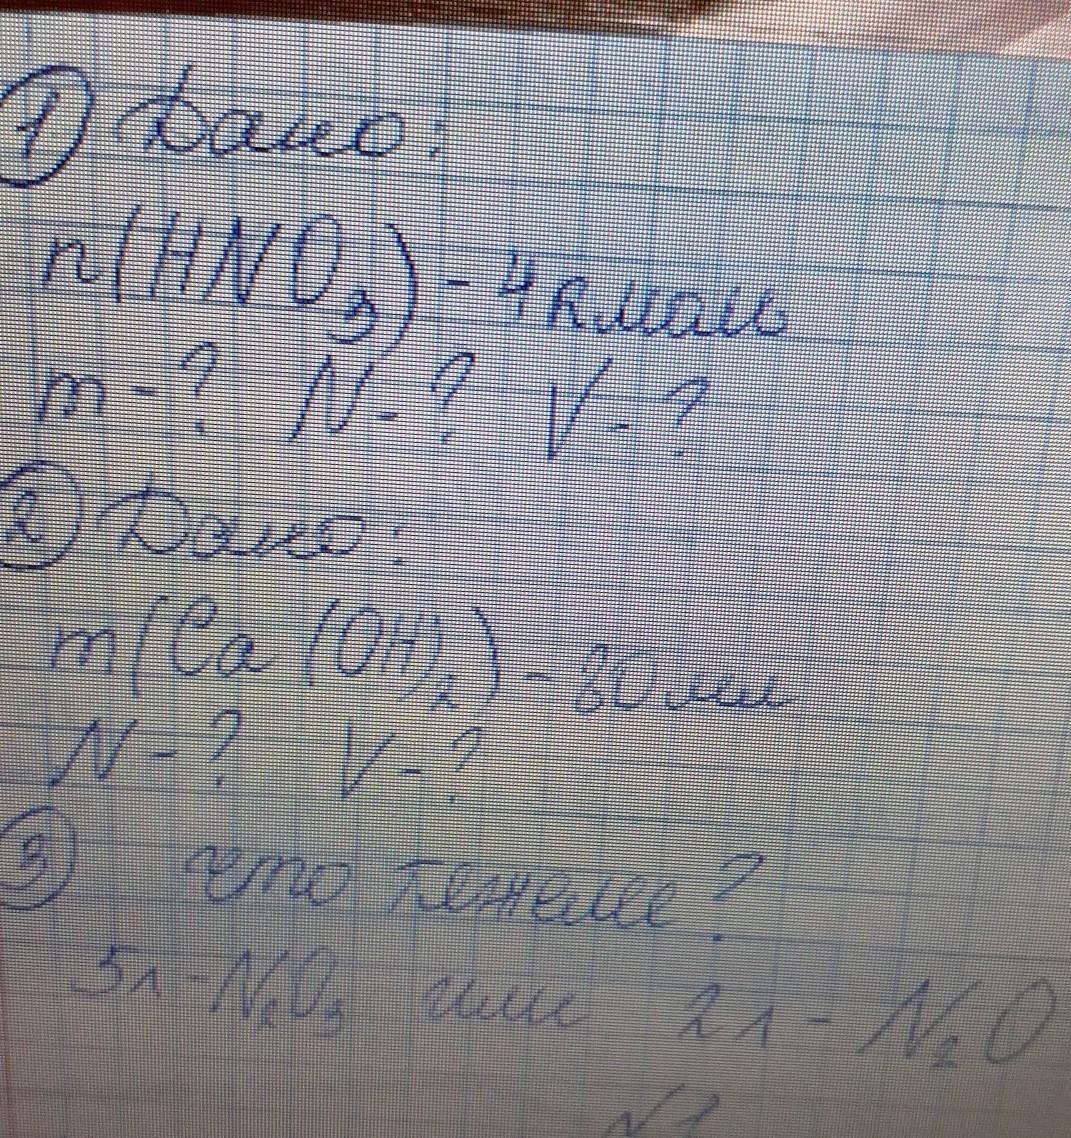 ① Дано:
n(HNO₃) - 4 кмоль
m - ? N - ? V - ?
② Дано:
m(Ca(OH)₂) - 80 мг
N - ? V - ?
③ что тяжелее?
5л - N₂O₃ или 2л - N₂O
№1